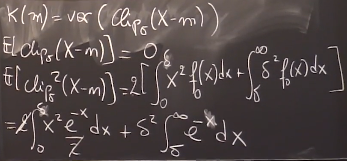 K(m) = var(clip_δ(X-m))
E[clip_δ(X-m)] = 0
E[clip_δ²(X-m)] = 2[∫_0^δ x² f_0(x)dx + ∫_δ^∞ δ² f_0(x)dx]
= 2∫_0^δ x² e^{-x}/2 dx + δ² ∫_δ^∞ e^{-x} dx